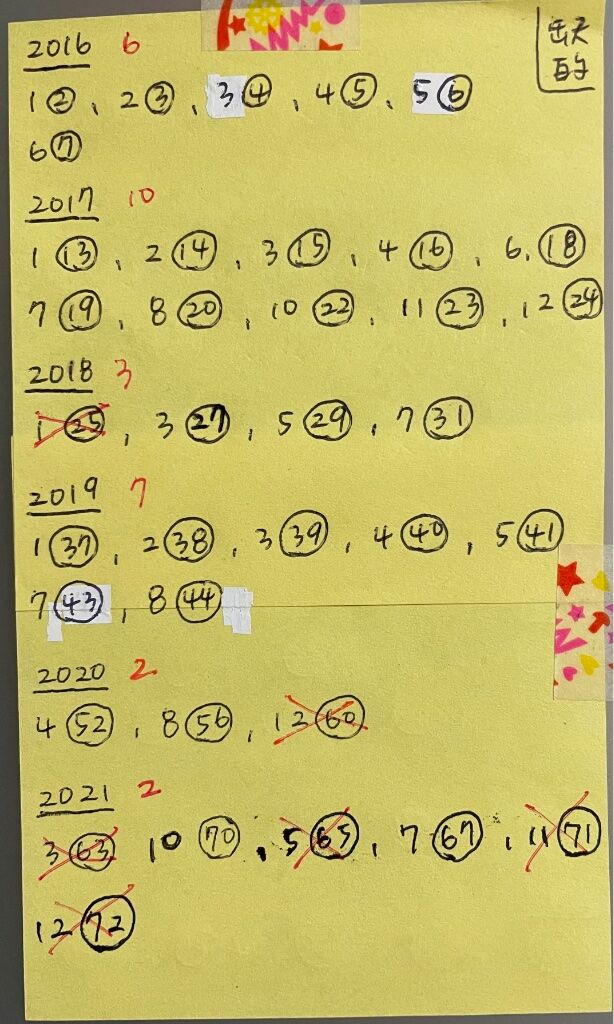 缺的
2016 6
1②, 2③, 3④, 4⑤, 5⑥
6⑦
2017 10
1⑬, 2⑭, 3⑮, 4⑯, 6,⑱
7⑲, 8⑳, 10㉒, 11㉓, 12㉔
2018 3
1㉕, 3㉗, 5㉙, 7㉛
2019 7
1㊲, 2㊳, 3㊴, 4㊵, 5㊶
7㊸, 8㊹
2020 2
4(52), 8(56), 12(60)
2021 2
3(63) 10(70), 5(65), 7(67), 11(71)
12(72)